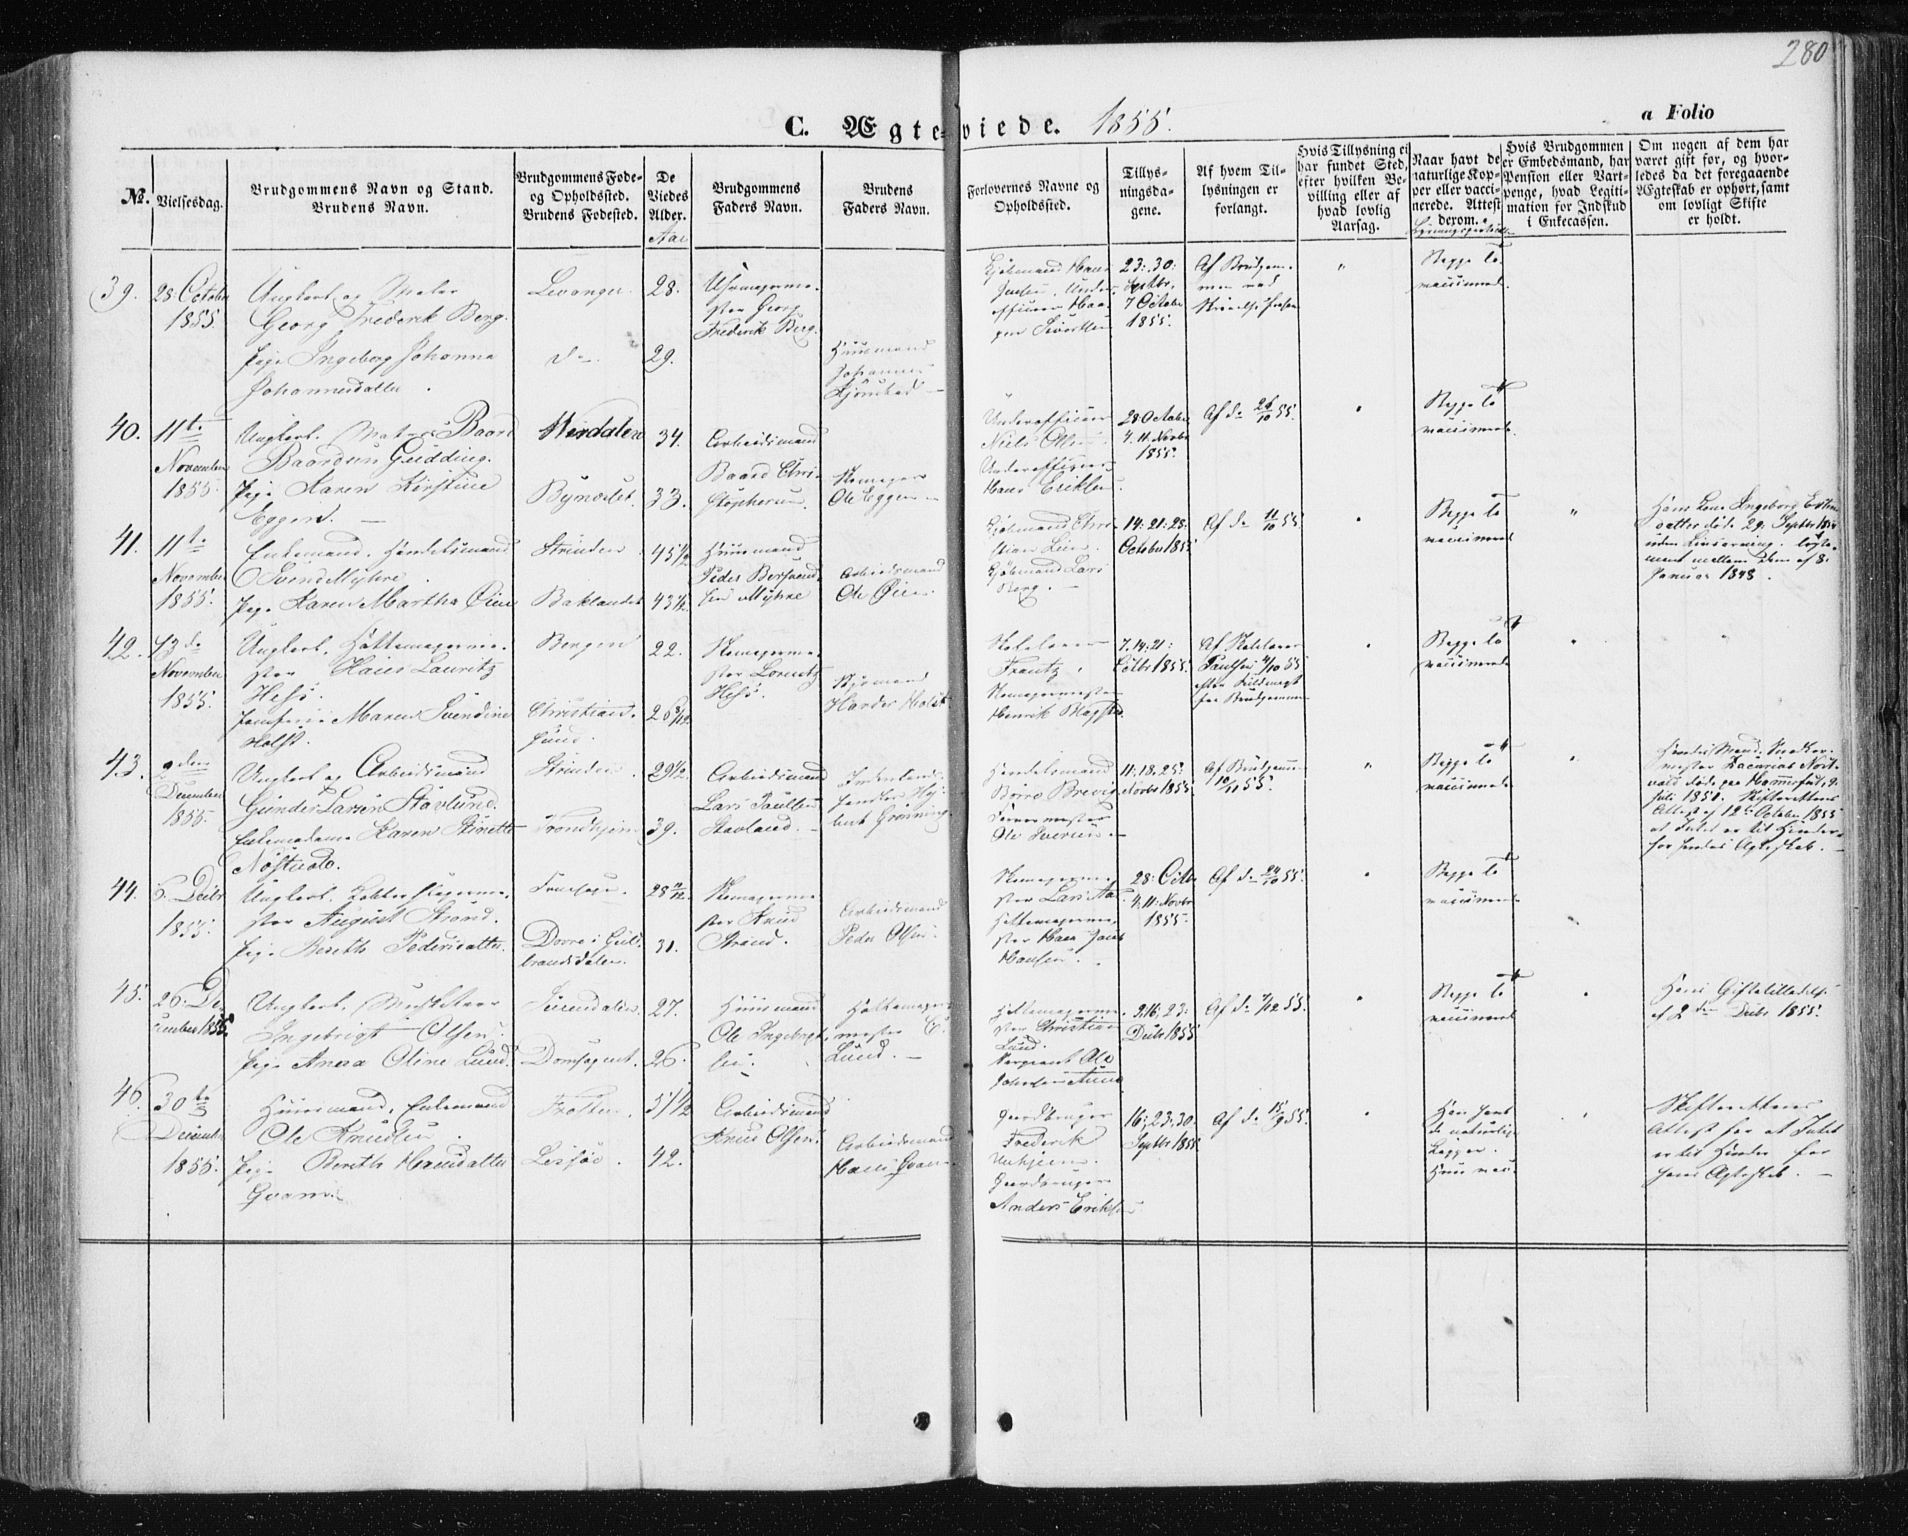 280
C. Ægteviede. 1855.
a Folio
No.
Vielsesdag.
Brudgommens Navn og Stand.
Brudens Navn.
Brudgommens Føde-
og Opholdssted.
Brudens Fødested.
De
Viedes
Alder.
Aar
Brudgommens
Faders Navn.
Brudens
Faders Navn.
Forlovernes Navne og
Opholdssted.
Tillys-
ningsda-
gene.
Af hvem Til-
lysningen er
forlangt.
Hvis Tillysning ei
har fundet Sted,
efter hvilken Be-
villing eller af
hvad lovlig
Aarsag.
Naar havt de
naturlige Kop-
per eller vacci-
nerede. Attest
derom.
Hvis Brudgommen
er Embedsmand, har
Pension eller Vart-
penge, hvad Legiti-
mation for Indskud
i Enkecassen.
Om nogen af dem har
været gift før, og hvor-
ledes da det foregaaende
Ægteskab er ophørt, samt
om lovligt Skifte
er holdt.
39.
28 October
1855.
Ungkarl og Maler
Georg Frederik Berg.
Pige Ingeborg Johanna
Johannesdatter.
Levanger
do
28.
29.
Uhrmagerme-
ster Georg
Frederik Berg.
Huusmand
Johannes
Hans
Jensen, Under-
officeer Haa-
gen Sivertsen
23: 30:
Septbr,
7 October
1855.
Af Brudgom-
men ved
"
Begge to
vaccinerede.
40.
11te
November
1855.
Ungkarl. Matros Baard
Baardsen Gudding.
Pige Karen Kirstine
Eggen.
Værdalen
Bynæsset
34.
33.
Arbeidsmand
Baard Chri-
stophersen
Skomager
Ole Eggen
Underofficeer
Niels Olsen
Underofficeer
Hans Eriksen.
28 October
4. 11. Novbr
1855.
Af do 26/10 55.
"
Begge to
vaccinerede.
41.
11te
November
1855.
Enkemand. Handelsmand
Svend Myhre.
Pige Karen Martha Øien
Strinden
Baklandet
45 1/2
43 1/2
Huusmand
Peder Bersvend-
sen Myhre
Arbeidsmand
Ole Øien.
Kjøbmand Chri-
stian Lien.
Kjøbmand Lars
Berg.
14: 21: 28:
October 1855
Af do 11/10 55.
"
Begge to
vaccinerede
"
Hans Kone Ingeborg Estens
datter døde 29. Septbr
uden Livsarving. Testa-
ment mellem dem af 8.
Januar 1848.
42.
13de
November
1855.
Ungkarl. Hattemagerme-
ster Hans Lauritz
Hess.
Jomfrue Maren Svendine
Holst.
Bergen
Christian-
sund.
22.
26
Skomagerme-
ster Lorentz
Hess.
Harder Holst
Skolelærer
Frantz.
Skomagermester
Henrik Blagstad.
7. 14. 21:
Octbr 1855.
Af Skolelærer
Paulsen
efter Fuldmagt
fra Brudgommen
"
Begge to
vaccinerede
"
43.
December
1855.
Ungkarl og Arbeidsmand
Gunder Larsen Stavlund.
Enkemadame Karen
Strinden
Trondhjem
29 1/2
39.
Arbeidsmand
Lars Paulsen
Stavland.
Grønning
Handelsmand
Børre Brevig
Ole Iversen.
11. 18. 25:
Novbr 1855
Af Brudgommen
10/11 55.
"
Begge to
vaccinerede
"
Hendes Mand, Snedker-
mester Zacarias Nost-
vold døde paa Hammerfest 9.
Juli 1851. Skifterettens
Attest af 12te October 1855
at Intet er til Hinder
for hendes Ægteskab.
44.
6. Decbr
1855.
Ungkarl. Kobberslagerme-
ster August Strand.
Pige Bereth Pedersdatter.
Dovre i Guld-
brandsdalen.
28
31.
Skomagerme-
ster Knud
Strand.
Arbeidsmand
Peder Olsen.
Skomagerme-
ster Lars Aas.
Hattemagerme-
ster Hans Jacob
Hansen.
28: Octbr
4. 11. Novbr
1855.
Af do 24/10 55.
"
Begge to
vaccinerede
45.
26. De-
cember 1855
Ungkarl.
Ingebrigt Olsen.
Pige Anna Oline Lund.
Surendalen
Domsognet.
27.
26.
Huusmand
Ole Ingebrigt-
sen.
Hattemager-
mester C.
Lund.
Hattemagerme-
ster Christian
Lund.
Sergeant Ole
Johnsen Aune
9. 16; 23:
Decbr 1855
Af do 7/12 55.
"
Begge to
vaccinerede
"
Hans Giftetilladelse
af 2den Decbr 1855.
46.
30te
December
1855.
Huusmand, Enkemand
Ole Knudsen
Pige Bereth Hansdatter
Qvam.
Lesjøe.
51 1/2
42.
Arbeidsmand
Knud Olsen
Arbeidsmand
Hans Qvam
Gaardbruger
Frederik
Gaardbruger
Anders Eriksen
16; 23; 30.
Septbr 1855
Af do 15/9 55.
"
Han havt
de naturlige
Kopper.
Hun vac.
"
Skifterettens
Attest for at Intet
er til Hinder for
hans Ægteskab.